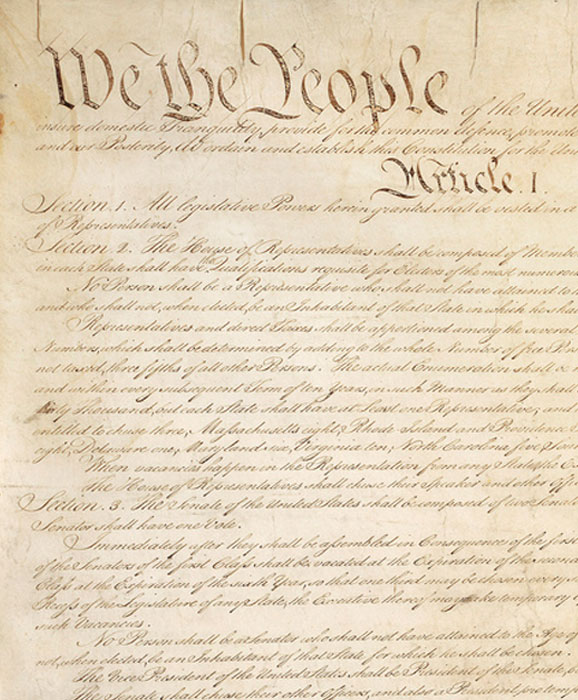 We the People of the Unite
insure domestic Tranquility, provide for the common defence, promote
and our Posterity, do ordain and establish this Constitution for the Uni
Article. I.
Section. 1. All legislative Powers herein granted shall be vested in a
of Representatives.
Section. 2. The House of Representatives shall be composed of Membe
in each State shall have the Qualifications requisite for Electors of the most numerou
No Person shall be a Representative who shall not have attained to
and who shall not, when elected, be an Inhabitant of that State in which he sha
Representatives and direct Taxes shall be apportioned among the several
Numbers, which shall be determined by adding to the whole Number of free Per
not taxed, three fifths of all other Persons. The actual Enumeration shall be
and within every subsequent Term of ten Years, in such Manner as they shall
thirty Thousand, but each State shall have at Least one Representative; and
entitled to chuse three, Massachusetts eight, Rhode Island and Providence
eight, Delaware one, Maryland six, Virginia ten, North Carolina five, Sou
When vacancies happen in the Representation from any State, the Ex
The House of Representatives shall chuse their Speaker and other Offi
Section. 3. The Senate of the United States shall be composed of two Senat
Senator shall have one Vote.
Immediately after they shall be assembled in Consequence of the first
of the Senators of the first Class shall be vacated at the Expiration of the second
Class at the Expiration of the sixth Year, so that one third may be chosen every
Recess of the Legislature of any State, the Executive thereof may make temporary
such Vacancies.
No Person shall be a Senator who shall not have attained to the Age of
not, when elected, be an Inhabitant of that State for which he shall be chosen.
The Vice President of the United States shall be President of the Senate,
The Senate shall chuse their other Officers, and also a President pro tem